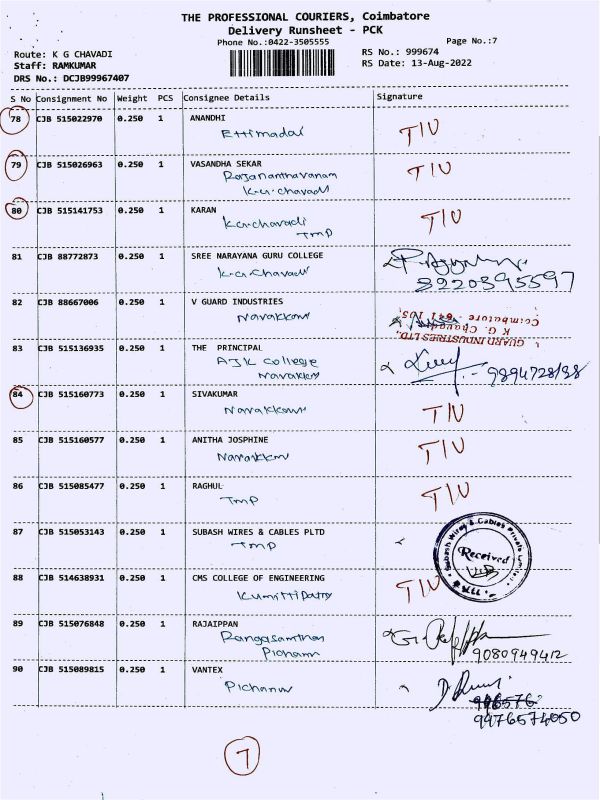 THE PROFESSIONAL COURIERS, Coimbatore
Delivery Runsheet - PCK
Phone No.:0422-3505555
Page No.:7
Route: K G CHAVADI
RS No.: 999674
Staff: RAMKUMAR
RS Date: 13-Aug-2022
DRS No.: DCJB99967407
S No Consignment No Weight PCS Consignee Details Signature
78 CJB 515022970 0.250 1 ANANDHI T/U
Ettimadai
79 CJB 515026963 0.250 1 VASANDHA SEKAR T/U
K.G.Chavadi
80 CJB 515141753 0.250 1 KARAN T/U
K.G.Chavadi
TMP
81 CJB 88772873 0.250 1 SREE NARAYANA GURU COLLEGE
K.G.Chavadi 8220395597
82 CJB 88667006 0.250 1 V GUARD INDUSTRIES
Navakkarai
GUARD INDUSTRIES LTD.,
K G. Chavadi
Coimbatore - 641 105.
83 CJB 515136935 0.250 1 THE PRINCIPAL
AJK College
Navakkm 9894728198
84 CJB 515160773 0.250 1 SIVAKUMAR
Navakkarai T/U
85 CJB 515160577 0.250 1 ANITHA JOSPHINE T/U
Navakkm
86 CJB 515085477 0.250 1 RAGHUL T/U
TMP
87 CJB 515053143 0.250 1 SUBASH WIRES & CABLES PLTD
TMP
Subash Wires & Cables Private Limited
Received
88 CJB 514638931 0.250 1 CMS COLLEGE OF ENGINEERING T/U
Kumittipatty
89 CJB 515076848 0.250 1 RAJAIPPAN
Pichanur 9080949412
90 CJB 515089815 0.250 1 VANTEX
Pichanur
9976574050
7